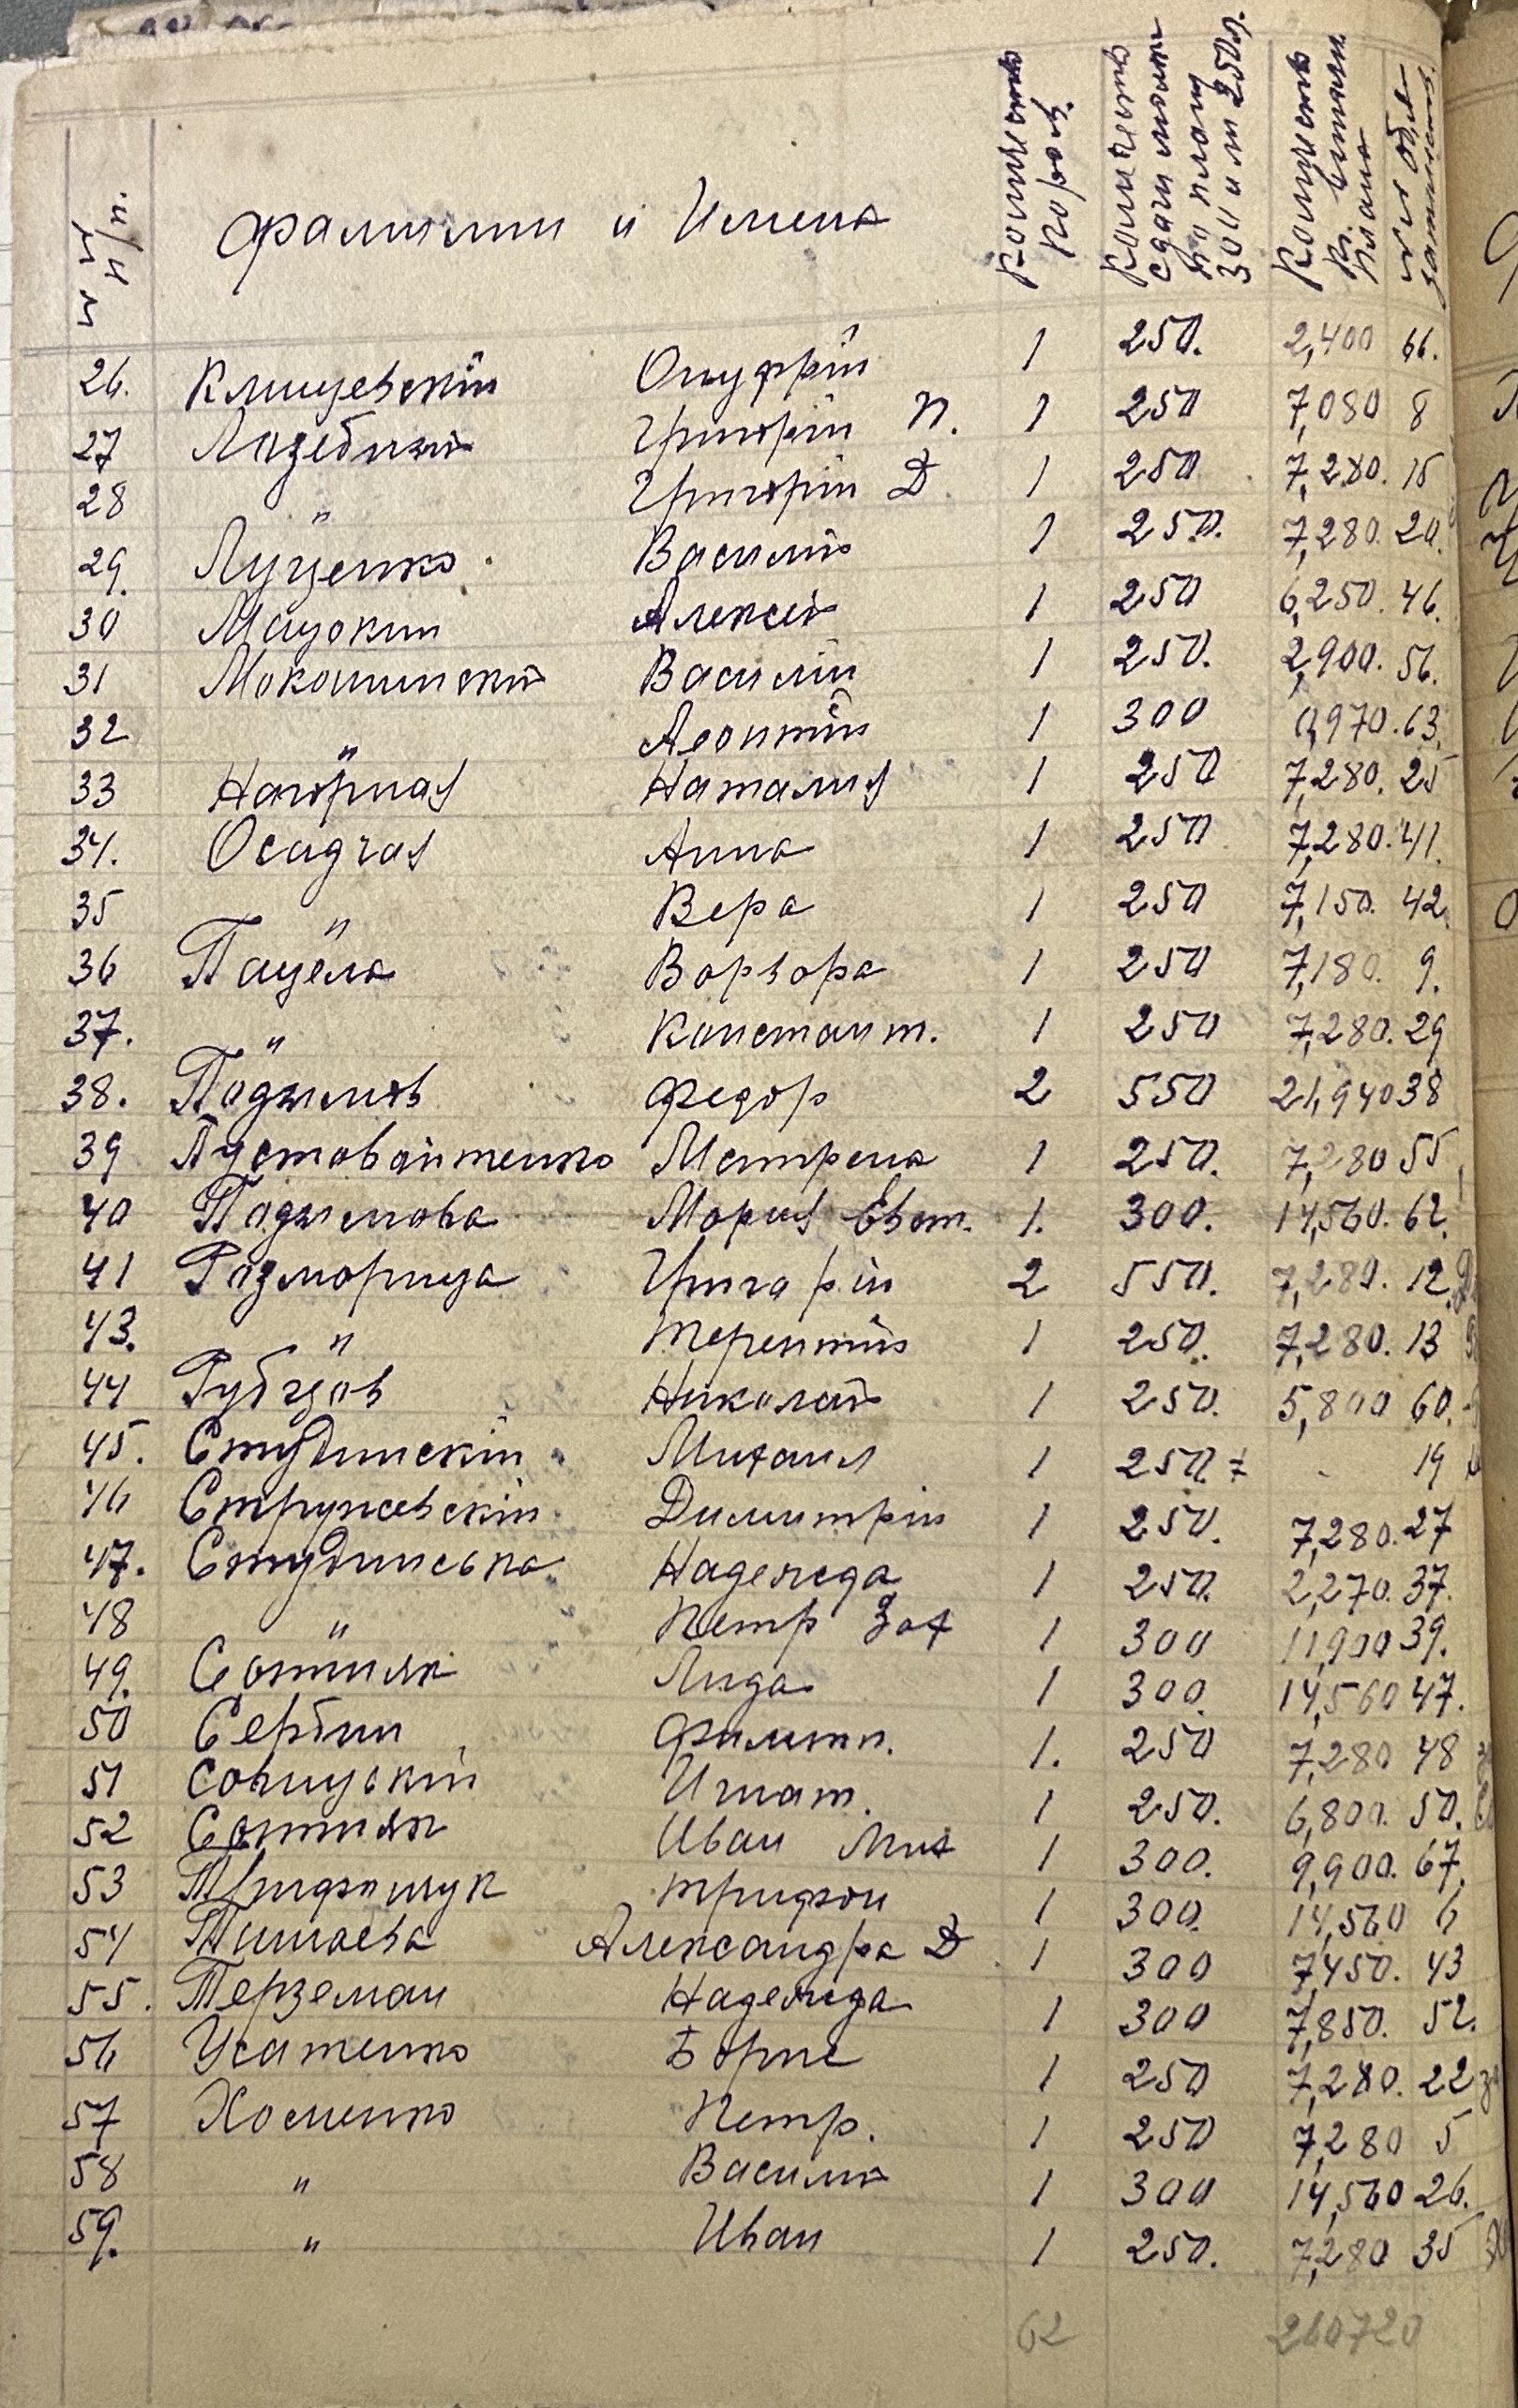 №№ п/п. Фамилии и Имена Количество Коров. Количеств сдачи молока по плану 300 и ли 250 л. Количеств выполн. плана
26. Клищевскій Онуфрій 1 250. 2,400 66.
27 Лазебный Григорій П. 1 250 7,080 8
28 " Григорій Д. 1 250 7,280. 15
29. Луценко Василій 1 250. 7,280. 20.
30 Мацокин Алексей 1 250 6,250. 46.
31 Мокошинский Василій 1 250. 2,900. 56.
32 " Леонтій 1 300 0,970. 63.
33 Нагорная Наталия 1 250 7,280. 25
34. Осадчая Анна 1 250 7,280. 41.
35 " Вера 1 250 7,150. 42.
36 Пацёла Варвара 1 250 7,180. 9.
37. " Констант. 1 250 7,280. 29
38. Подымов Федор 2 550 21,940 38
39 Пустовойтенко Мотрена 1 250. 7,280 55
40 Подымова Мария Евт. 1. 300. 14,560. 62.
41 Разморица Григорій 2 550. 7,280. 12.
43. " Терентій 1 250. 7,280. 13
44 Рубцов Николай 1 250. 5,800 60.
45. Студинскій Михаил 1 250 19
46 Стружевскій Димитрій 1 250. 7,280. 27
47. Студинська Надежда 1 250. 2,270. 37.
48 " Петр Зах 1 300 11,900 39.
49. Сотник Лида 1 300. 14,560 47.
50 Сербин Филипп. 1. 250 7,280 48
51 Савицькій Игнат. 1 250. 6,800. 50.
52 Сотник Иван Мих 1 300. 9,900. 67.
53 Трифощук Трифон 1 300. 14,560 6
54 Тишаева Александра Д 1 300 7,450. 43
55. Терземан Надежда 1 300 7,850. 52.
56 Усатенко Борис 1 250 7,280. 22
57 Хоменко Петр. 1 250 7,280 5
58 " Василий 1 300 14,560 26.
59. " Иван 1 250. 7,280 35
62 260720